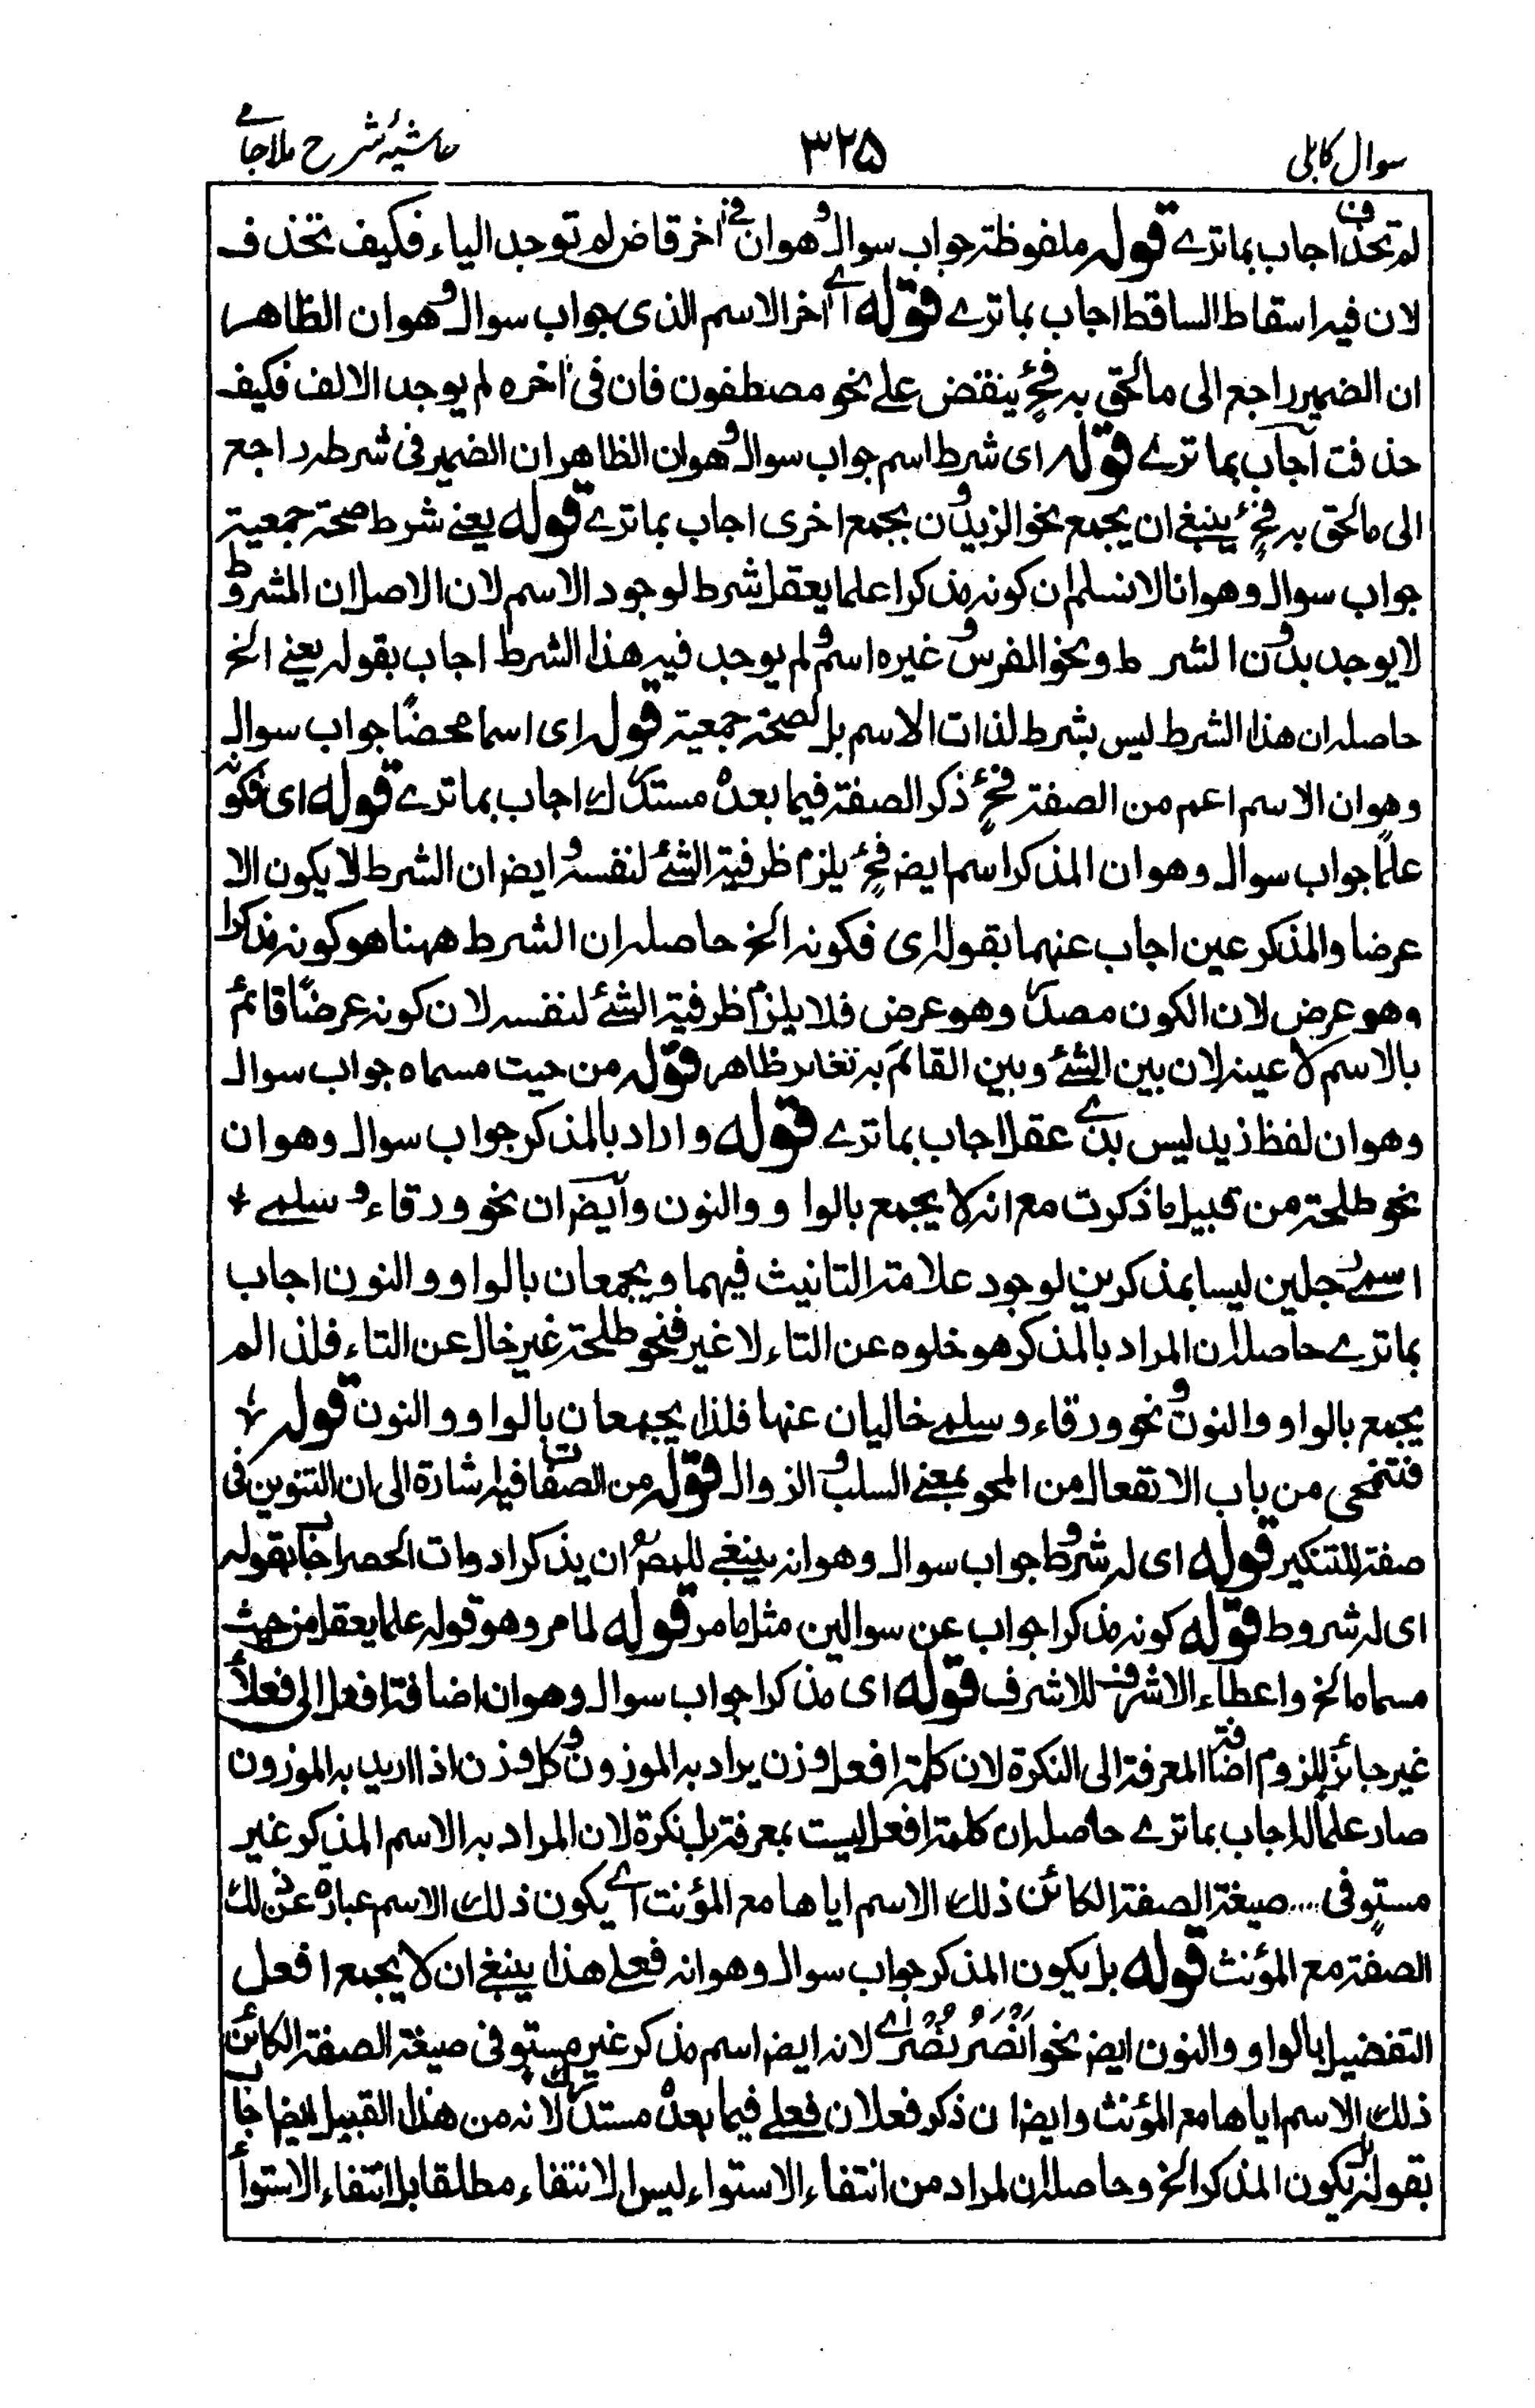 سوال کابلی ۳۲۵ حاشیۂ شرح ملا جامے
لم تحذف اجاب بماترے قوله ملفوظة جواب سوال وهو ان فی اخر قاض لم توجد الیاء فکیف تحذف
لان فیه اسقاط الساقط اجاب بماترے قوله اے اخر الاسم الذی جواب سوال وهو ان الظاهر
ان الضمیر راجع الی مالحق به فحٍ ینقض علے نحو مصطفون فان فی اخره لم یوجد الالف فکیف
حذفت اجاب بما ترے قوله ای شرط اسم جواب سوال وهو ان الظاهر ان الضمیر فی شرطه راجع
الی مالحق به فحٍ ینبغی ان یجمع نحو الزیدون بجمع اخری اجاب بماترے قوله یعنے شرط صحة جمعیة
جواب سوال وهو انا لا نسلم ان کونه مذکرا علما یعقل شرط لوجود الاسم لان الاصل ان المشروط
لا یوجد بدون الشرط ونحو الفرس وغیره اسم ولم یوجد فیه هذا الشرط اجاب بقوله یعنے الخ
حاصله ان هذا الشرط لیس بشرط لذات الاسم بل لصحة جمعیة قوله ای اسما محضًا جواب سوال
وهو ان الاسم اعم من الصفة فحٍ ذکر الصفة فیما بعده مستدرك اجاب بماترے قوله ای فکونه
علمًا جواب سوال وهو ان المذکر اسم ایض فحٍ یلزم ظرفیة الشئ لنفسه وایض ان الشرط لا یکون الا
عرضا والمذکر عین اجاب عنهما بقوله ای فکونه الخ حاصله ان الشرط ههنا هو کونه مذکرا
وهو عرض لان الکون مصدر وهو عرض فلا یلزم ظرفیة الشئ لنفسه لان کونه عرضًا قائم
بالاسم لا عینه لان بین الشئ وبین القائم به تغایر ظاهر قوله من حیت مسماه جواب سوال
وهو ان لفظ زید لیس بذے عقل اجاب بماترے قوله واراد بالمذکر جواب سوال وهو ان
نحو طلحة من قبیل ماذکرت مع انه لا یجمع بالواو والنون وایض ان نحو ورقاء وسلمے
اسمے رجلین لیسا بمذکرین لوجود علامة التانیث فیهما ویجمعان بالواو والنون اجاب
بماترے حاصله ان المراد بالمذکر هو خلوه عن التاء لا غیر فنحو طلحة غیر خال عن التاء فلذا لم
یجمع بالواو والنون ونحو ورقاء وسلمے خالیان عنها فلذا یجمعان بالواو والنون قوله
فتنمحی من باب الانفعال من المحو بمعنے السلب والزوال قوله من الصفات فیه اشارة الی ان التنوین فی
صفة للتنکیر قوله ای له شروط جواب سوال وهو انه ینبغے للمصؒ ان یذکر ادوات الحصر اجاب بقوله
ای له شروط قوله کونه مذکرا جواب عن سوالین مثل ما مر قوله لما مر وهو قوله علما یعقل من حیث
مسماه الخ واعطاء الاشرف للاشرف قوله ای مذکرا جواب سوال وهو ان اضافة افعل الی فعلاء
غیر جائز للزوم اضافة المعرفة الی النکرة لان کلمة افعل وزن یراد به الموزون وکل وزن اذا ارید به الموزون
صار علما له اجاب بماترے حاصله ان کلمة افعل لیست بمعرفة بل نکرة لان المراد به الاسم المذکر غیر
مستوفی .... صیغة الصفة الکائن ذلك الاسم ایاها مع المؤنث اے یکون ذلك الاسم عبارة عن ذلك
الصفة مع المؤنث قوله بل یکون المذکر جواب سوال وهو انه فعلے هذا ینبغے ان لا یجمع افعل
التفضیل بالواو والنون ایض نحو اَنْصَرُ نُصْرٰے لانه ایض اسم مذکر غیر مستوفی صیغة الصفة الکائن
ذلك الاسم ایاها مع المؤنث وایضا ن ذکر فعلان فعلے فیما بعده مستدرك لانه من هذا القبیل ایضا اجاب
بقوله بل یکون المذکر الخ وحاصله ان لمراد من انتفاء الاستواء لیس الانتفاء مطلقا بل انتفاء الاستواء